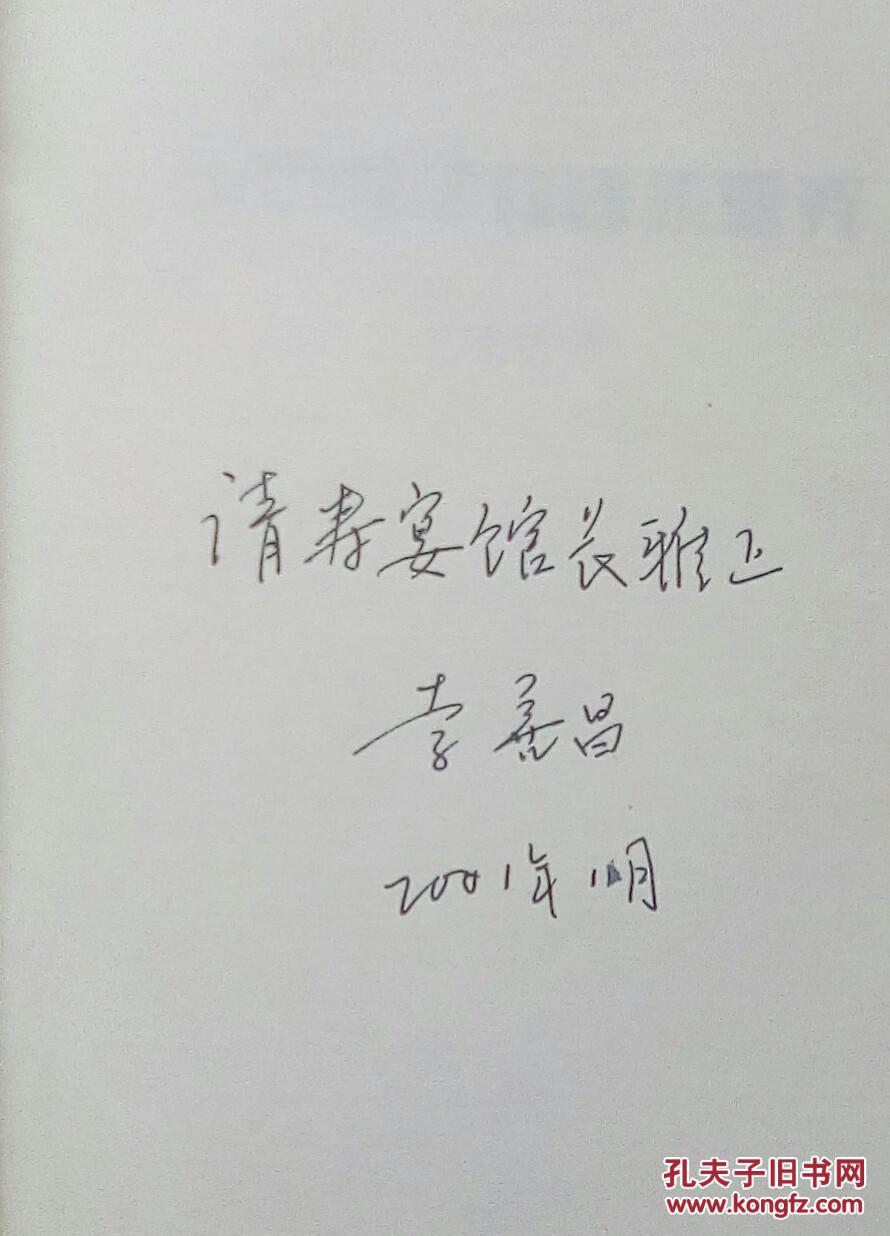 请寿宴馆长雅正
李善昌
2001年1月
孔夫子旧书网
www.kongfz.com